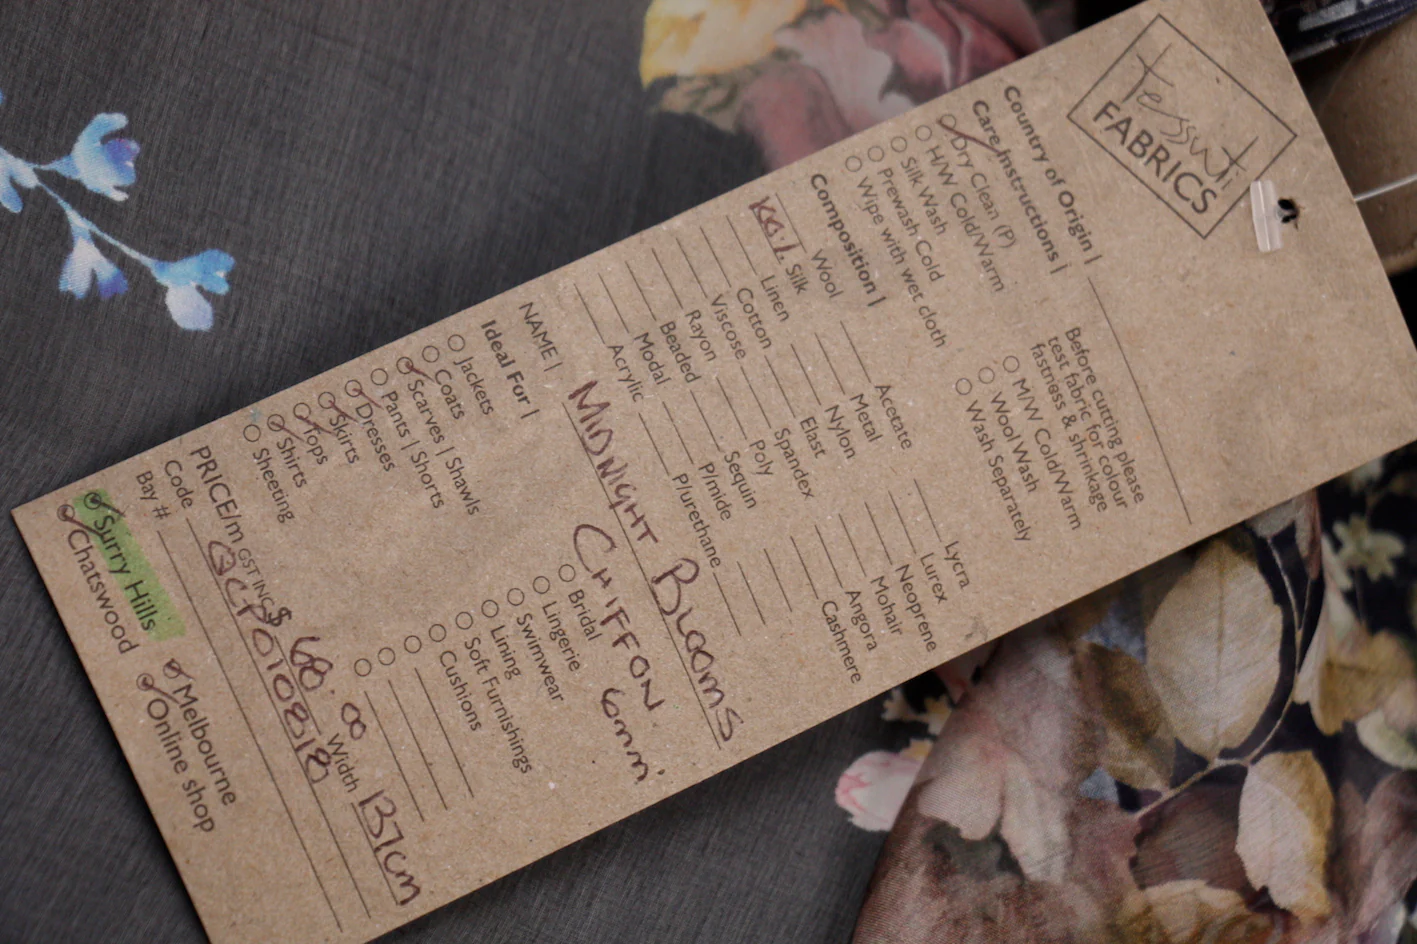 tessuti
FABRICS
Country of Origin |
Care Instructions |
Dry Clean (P)
H/W Cold/Warm
Silk Wash
Prewash Cold
Wipe with wet cloth
Before cutting please
test fabric for colour
fastness & shrinkage
M/W Cold/Warm
Wool Wash
Wash Separately
Composition |
Wool
Silk
Linen
Cotton
Viscose
Rayon
Beaded
Modal
Acrylic
Acetate
Metal
Nylon
Elast
Spandex
Poly
Sequin
P/mide
P/urethane
Lycra
Lurex
Neoprene
Mohair
Angora
Cashmere
NAME | MIDNIGHT BLOOMS
CHIFFON 6mm
Ideal For |
Jackets
Coats
Scarves | Shawls
Pants | Shorts
Dresses
Skirts
Tops
Shirts
Sheeting
Bridal
Lingerie
Swimwear
Lining
Soft Furnishings
Cushions
PRICE/m GST INC $ 68.00 Width 137cm
Code
Bay #
Surry Hills
Chatswood
Melbourne
Online shop